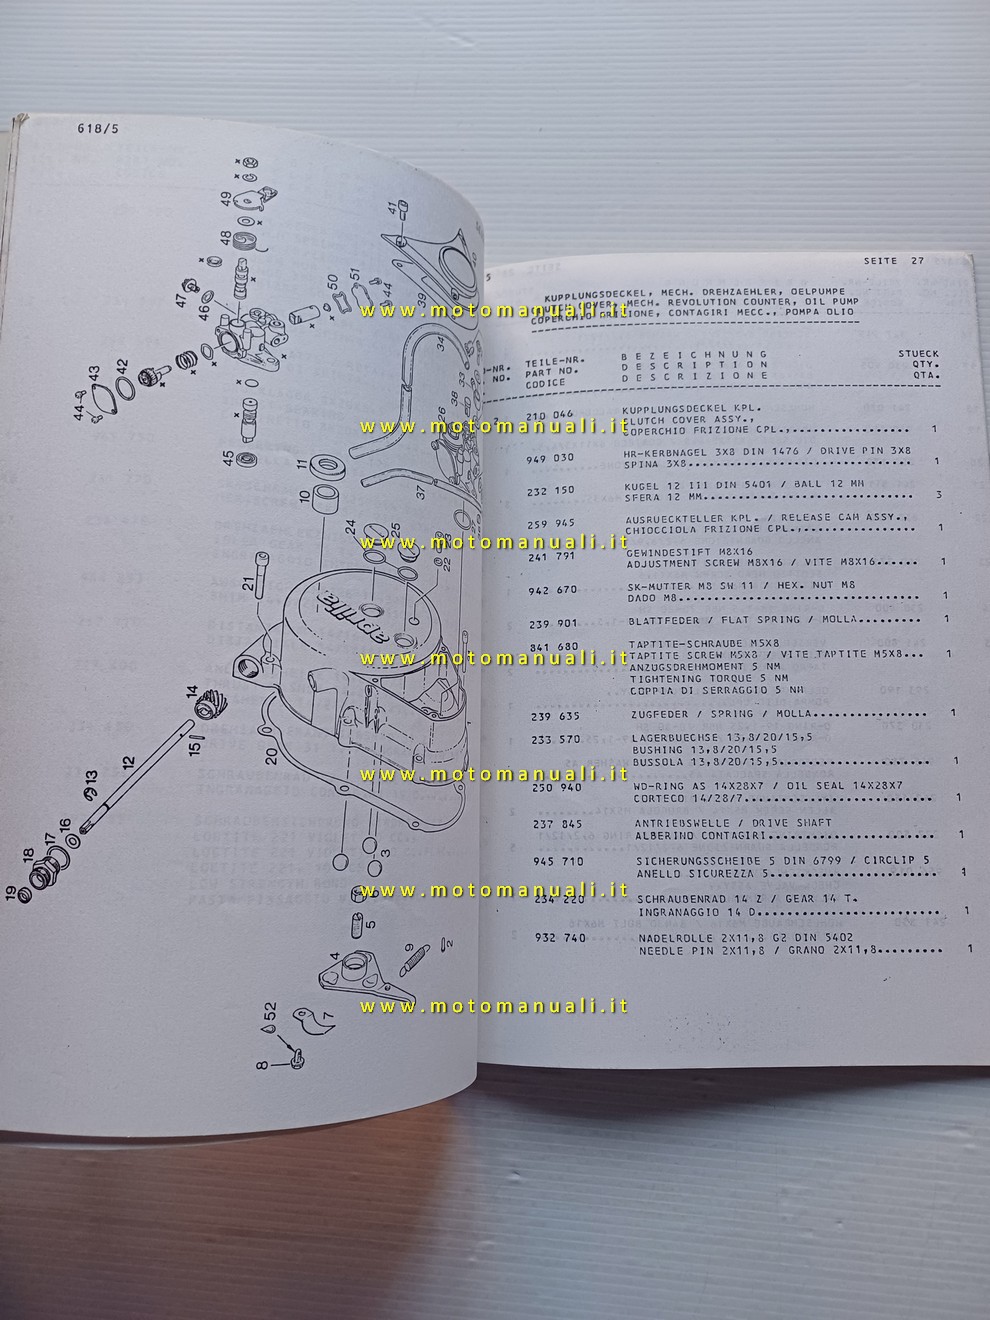 618/5
SEITE 27
5
KUPPLUNGSDECKEL, MECH. DREHZAEHLER, OELPUMPE
CLUTCH COVER, MECH. REVOLUTION COUNTER, OIL PUMP
COPERCHIO FRIZIONE, CONTAGIRI MECC., POMPA OLIO
-NR. TEILE-NR. B E Z E I C H N U N G STUECK
NO. PART NO. D E S C R I P T I O N QTY.
CODICE D E S C R I Z I O N E QTA.
210 046 KUPPLUNGSDECKEL KPL.
CLUTCH COVER ASSY.,
COPERCHIO FRIZIONE CPL., 1
949 030 HR-KERBNAGEL 3X8 DIN 1476 / DRIVE PIN 3X8
SPINA 3X8 1
232 150 KUGEL 12 III DIN 5401 / BALL 12 MM
SFERA 12 MM 3
259 945 AUSRUECKTELLER KPL. / RELEASE CAM ASSY.,
CHIOCCIOLA FRIZIONE CPL., 1
241 791 GEWINDESTIFT M8X16
ADJUSTMENT SCREW M8X16 / VITE M8X16 1
942 670 SK-MUTTER M8 SW 11 / HEX. NUT M8
DADO M8 1
239 901 BLATTFEDER / FLAT SPRING / MOLLA 1
841 680 TAPTITE-SCHRAUBE M5X8
TAPTITE SCREW M5X8 / VITE TAPTITE M5X8 1
ANZUGSDREHMOMENT 5 NM
TIGHTENING TORQUE 5 NM
COPPIA DI SERRAGGIO 5 NM
239 635 ZUGFEDER / SPRING / MOLLA 1
233 570 LAGERBUECHSE 13,8/20/15,5
BUSHING 13,8/20/15,5
BUSSOLA 13,8/20/15,5 1
250 940 WD-RING AS 14X28X7 / OIL SEAL 14X28X7
CORTECO 14/28/7 1
237 845 ANTRIEBSWELLE / DRIVE SHAFT
ALBERINO CONTAGIRI 1
945 710 SICHERUNGSSCHEIBE 5 DIN 6799 / CIRCLIP 5
ANELLO SICUREZZA 5 1
234 220 SCHRAUBENRAD 14 Z / GEAR 14 T.
INGRANAGGIO 14 D 1
932 740 NADELROLLE 2X11,8 G2 DIN 5402
NEEDLE PIN 2X11,8 / GRANO 2X11,8 1
www.motomanuali.it
www.motomanuali.it
www.motomanuali.it
www.motomanuali.it
www.motomanuali.it
www.motomanuali.it
www.motomanuali.it
49
48
47
46
50
51
44
41
39
34
33
38
26
37
42
43
44
45
11
10
24
25
22
21
14
15
12
13
16
17
18
19
20
3
6
5
4
9
2
7
52
8